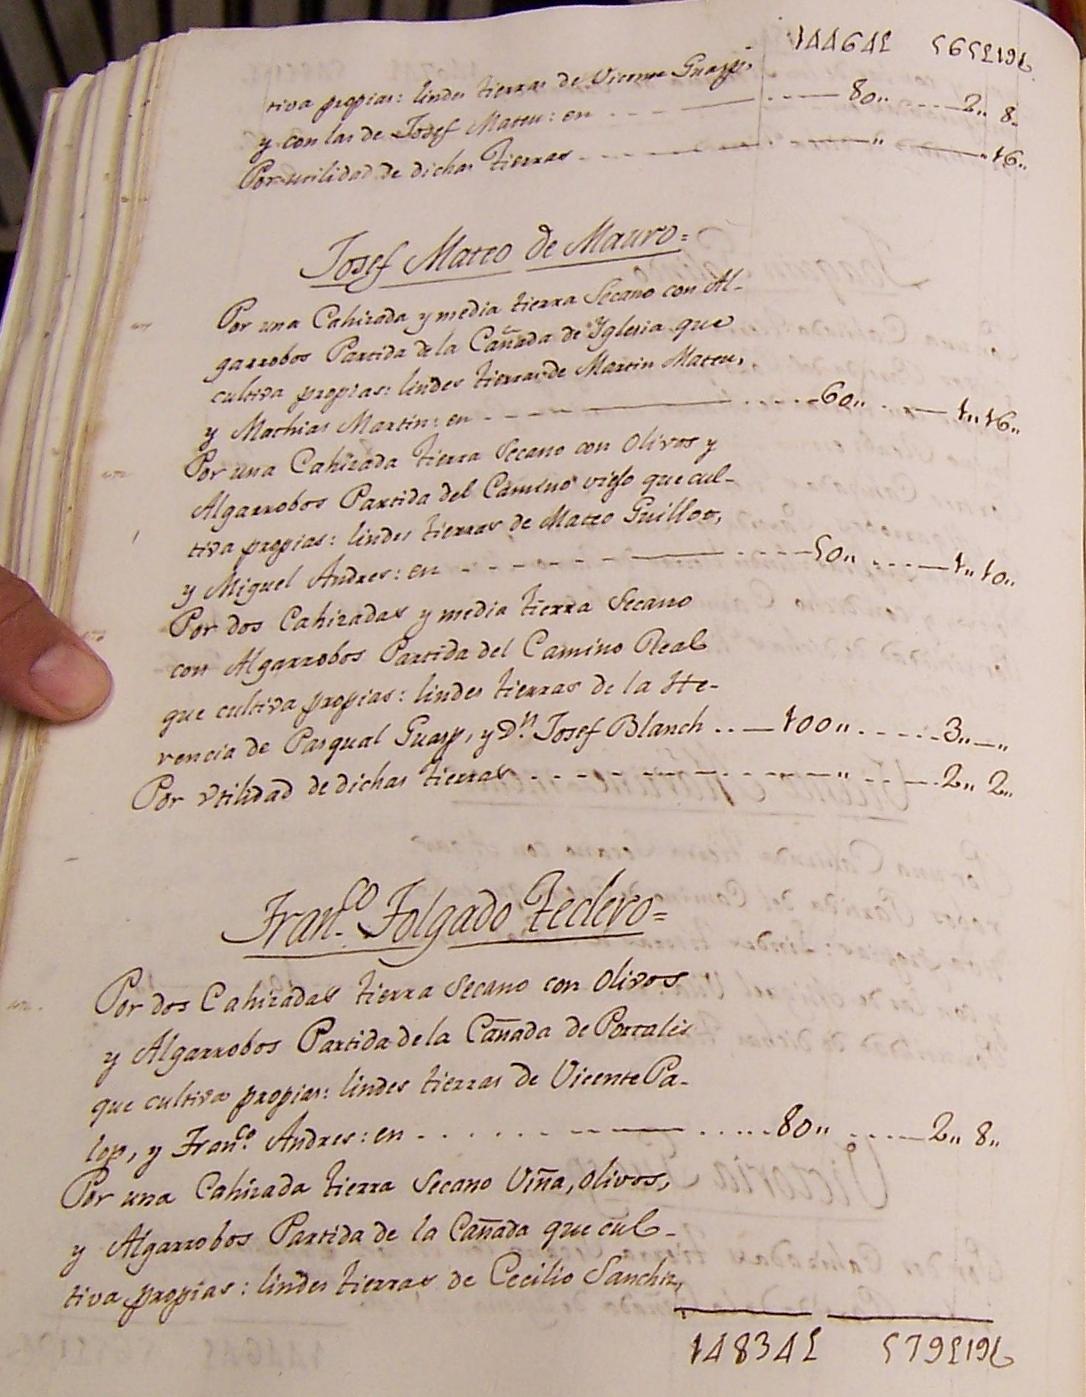 144641
tiva propias: lindes tierras de Vicente Guasp,
y con las de Josef Mateu: en 80,, 2,, 8,,
Por utilidad de dichas tierras ,, ,,16,,
Josef Mateo de Mauro=
Por una Cahizada y media tierra Secano con Al-
garrobos Partida de la Cañada de Yglesia que
cultiva propias: lindes tierras de Martin Mateu,
y Mathias Martin: en 60,, 1,,16,,
Por una Cahizada tierra Secano con Olivos y
Algarrobos Partida del Camino viejo que cul-
tiva propias: lindes tierras de Mateo Guillot,
y Miguel Andres: en 50,, 1,,10,,
Por dos Cahizadas y media tierra Secano
con Algarrobos Partida del Camino Real
que cultiva propias: lindes tierras de la He-
rencia de Pasqual Guasp, y Dn. Josef Blanch 100,, 3,,—,,
Por Vtilidad de dichas tierras ,, 2,, 2,,
Fran.co Folgado Teclero=
Por dos Cahizadas tierra Secano con Olivos
y Algarrobos Partida de la Cañada de Portales
que cultiva propias: lindes tierras de Vicente Pa-
lop, y Fran.co Andres: en 80,, 2,, 8,,
Por una Cahizada tierra Secano Viña, Olivos,
y Algarrobos Partida de la Cañada que cul-
tiva propias: lindes tierras de Cecilio Sanchiz,